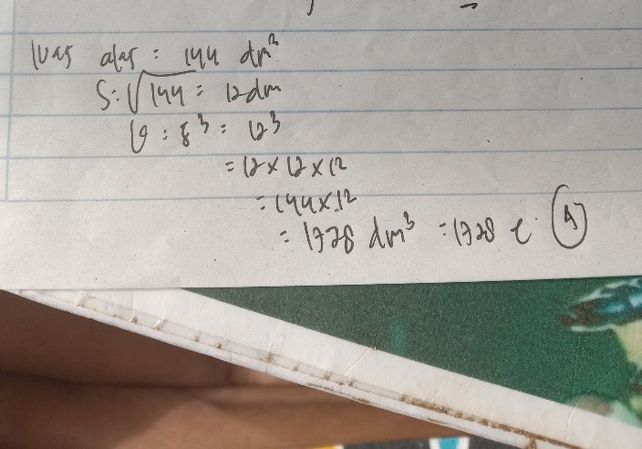 luas alas = 144 dm²
S = √144 = 12 dm
V = s³ = 12³
= 12 × 12 × 12
= 144 × 12
= 1728 dm³ = 1728 l